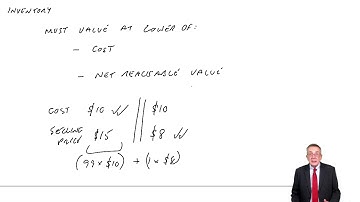 INVENTORY
MUST VALUE AT LOWER OF:
- COST
- NET REALISABLE VALUE
COST $10 ✓✓ $10
SELLING PRICE $15 $8 ✓✓
(99 x $10) + (1 x $8)